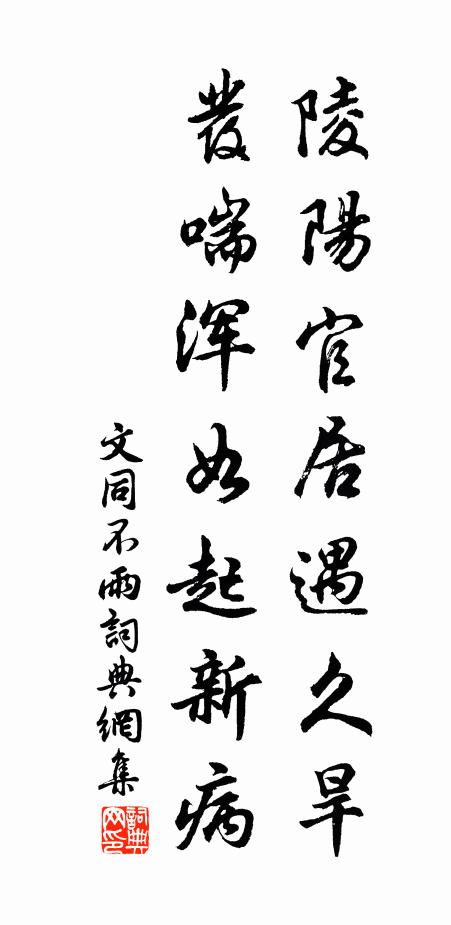 陵陽官居遇久旱
發喘渾如起新病
文同不雨詞典網集
詞典網印